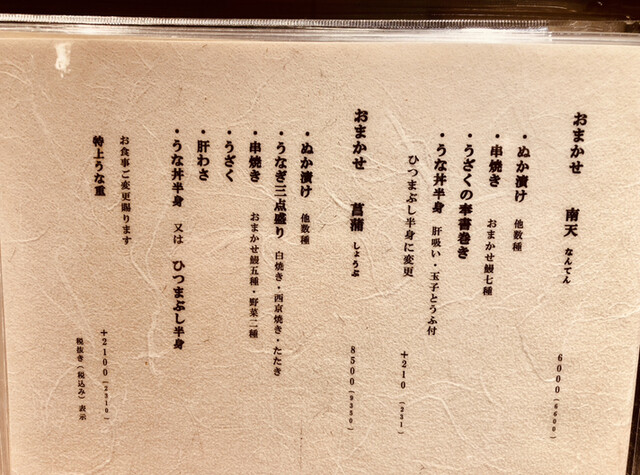 おまかせ 南天 なんてん 6000(6600)
・ぬか漬け 他数種
・串焼き おまかせ鰻七種
・うざくの奉書巻き
・うな丼半身 肝吸い・玉子とうふ付
ひつまぶし半身に変更 +210(231)
おまかせ 菖蒲 しょうぶ 8500(9350)
・ぬか漬け 他数種
・うなぎ三点盛り 白焼き・西京焼き・たたき
・串焼き おまかせ鰻五種・野菜二種
・うざく
・肝わさ
・うな丼半身 又は ひつまぶし半身
お食事ご変更賜ります
特上うな重 +2100(2310)
税抜き(税込み)表示